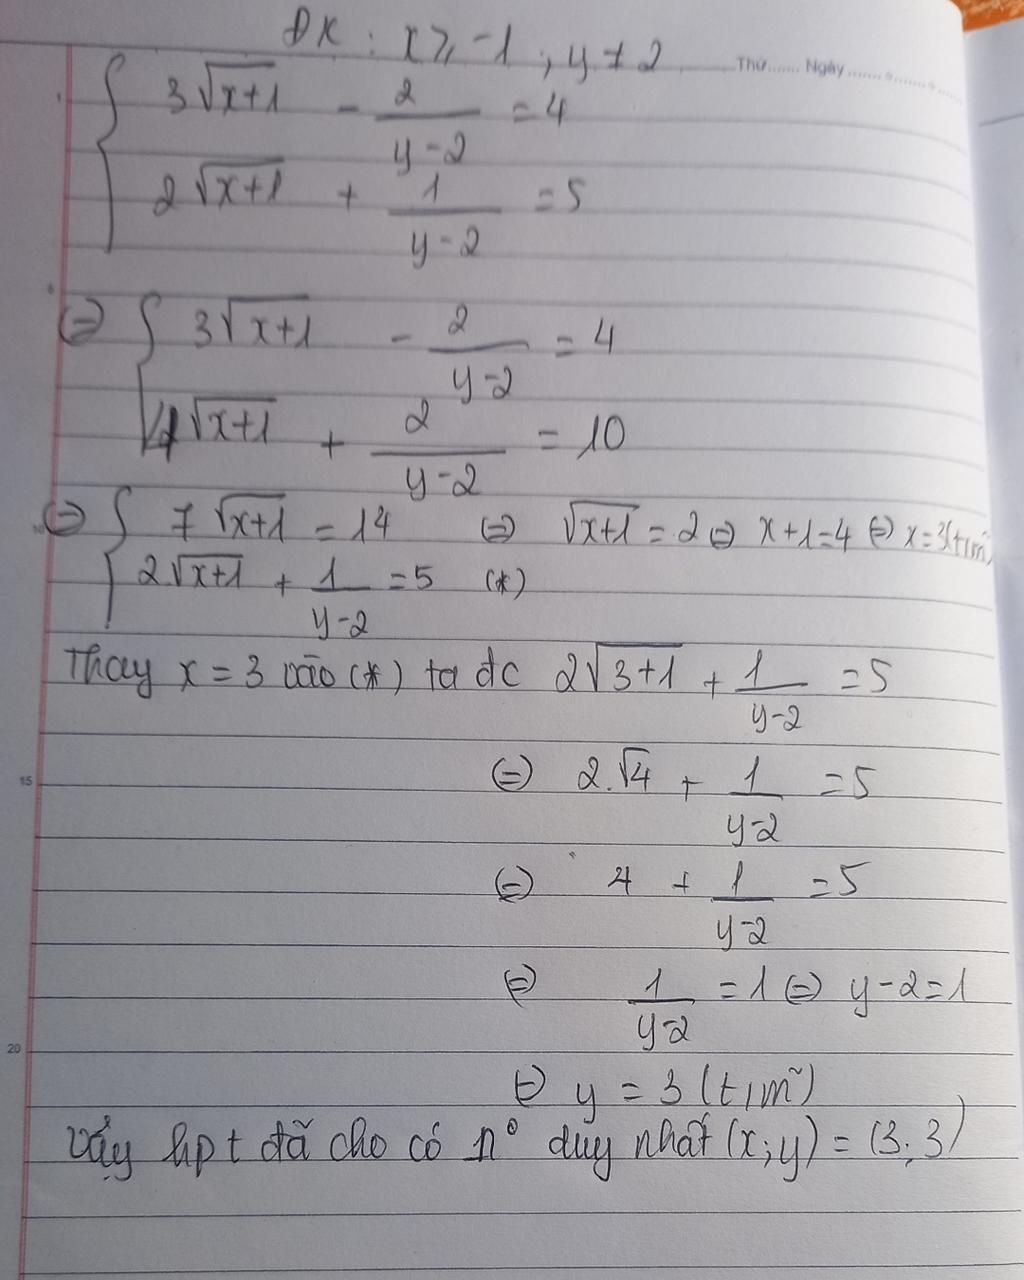 ĐK : x ≥ -1 ; y ≠ 2
Thứ...... Ngày..................
{ 3√(x+1) - 2/(y-2) = 4
2√(x+1) + 1/(y-2) = 5
(=) { 3√(x+1) - 2/(y-2) = 4
4√(x+1) + 2/(y-2) = 10
(=) { 7√(x+1) = 14 (=) √(x+1) = 2 (=) x+1=4 (=) x=3(t/m)
2√(x+1) + 1/(y-2) = 5 (*)
Thay x = 3 vào (*) ta đc 2√(3+1) + 1/(y-2) = 5
(=) 2.√4 + 1/(y-2) = 5
15
(=) 4 + 1/(y-2) = 5
(=) 1/(y-2) = 1 (=) y-2=1
20
(=) y = 3 (t/m)
Vậy hpt đã cho có n° duy nhất (x;y) = (3;3)